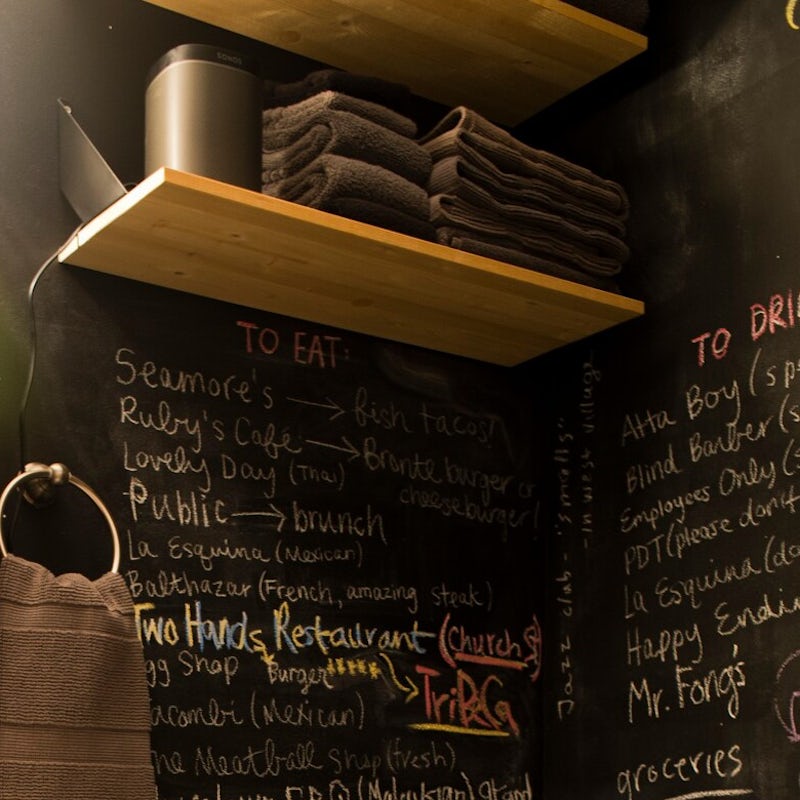 SONOS
TO EAT:
Seamore's → fish tacos!
Ruby's Café → Bronte burger or
cheeseburger!
Lovely Day (Thai)
Public → brunch
La Esquina (Mexican)
Balthazar (French, amazing steak)
Two Hands Restaurant (church
gg Shop Burger
TriBCa
acombi (Mexican)
Meatball Shop (fresh)
(Malaysian) grand
Jazz club - "smalls"
- in west village
TO DRI
Atta Boy (sp
Blind Barber (s
Employees Only (s
PDT (please don't
La Esquina (do
Happy Endin
Mr. Fong's
groceries